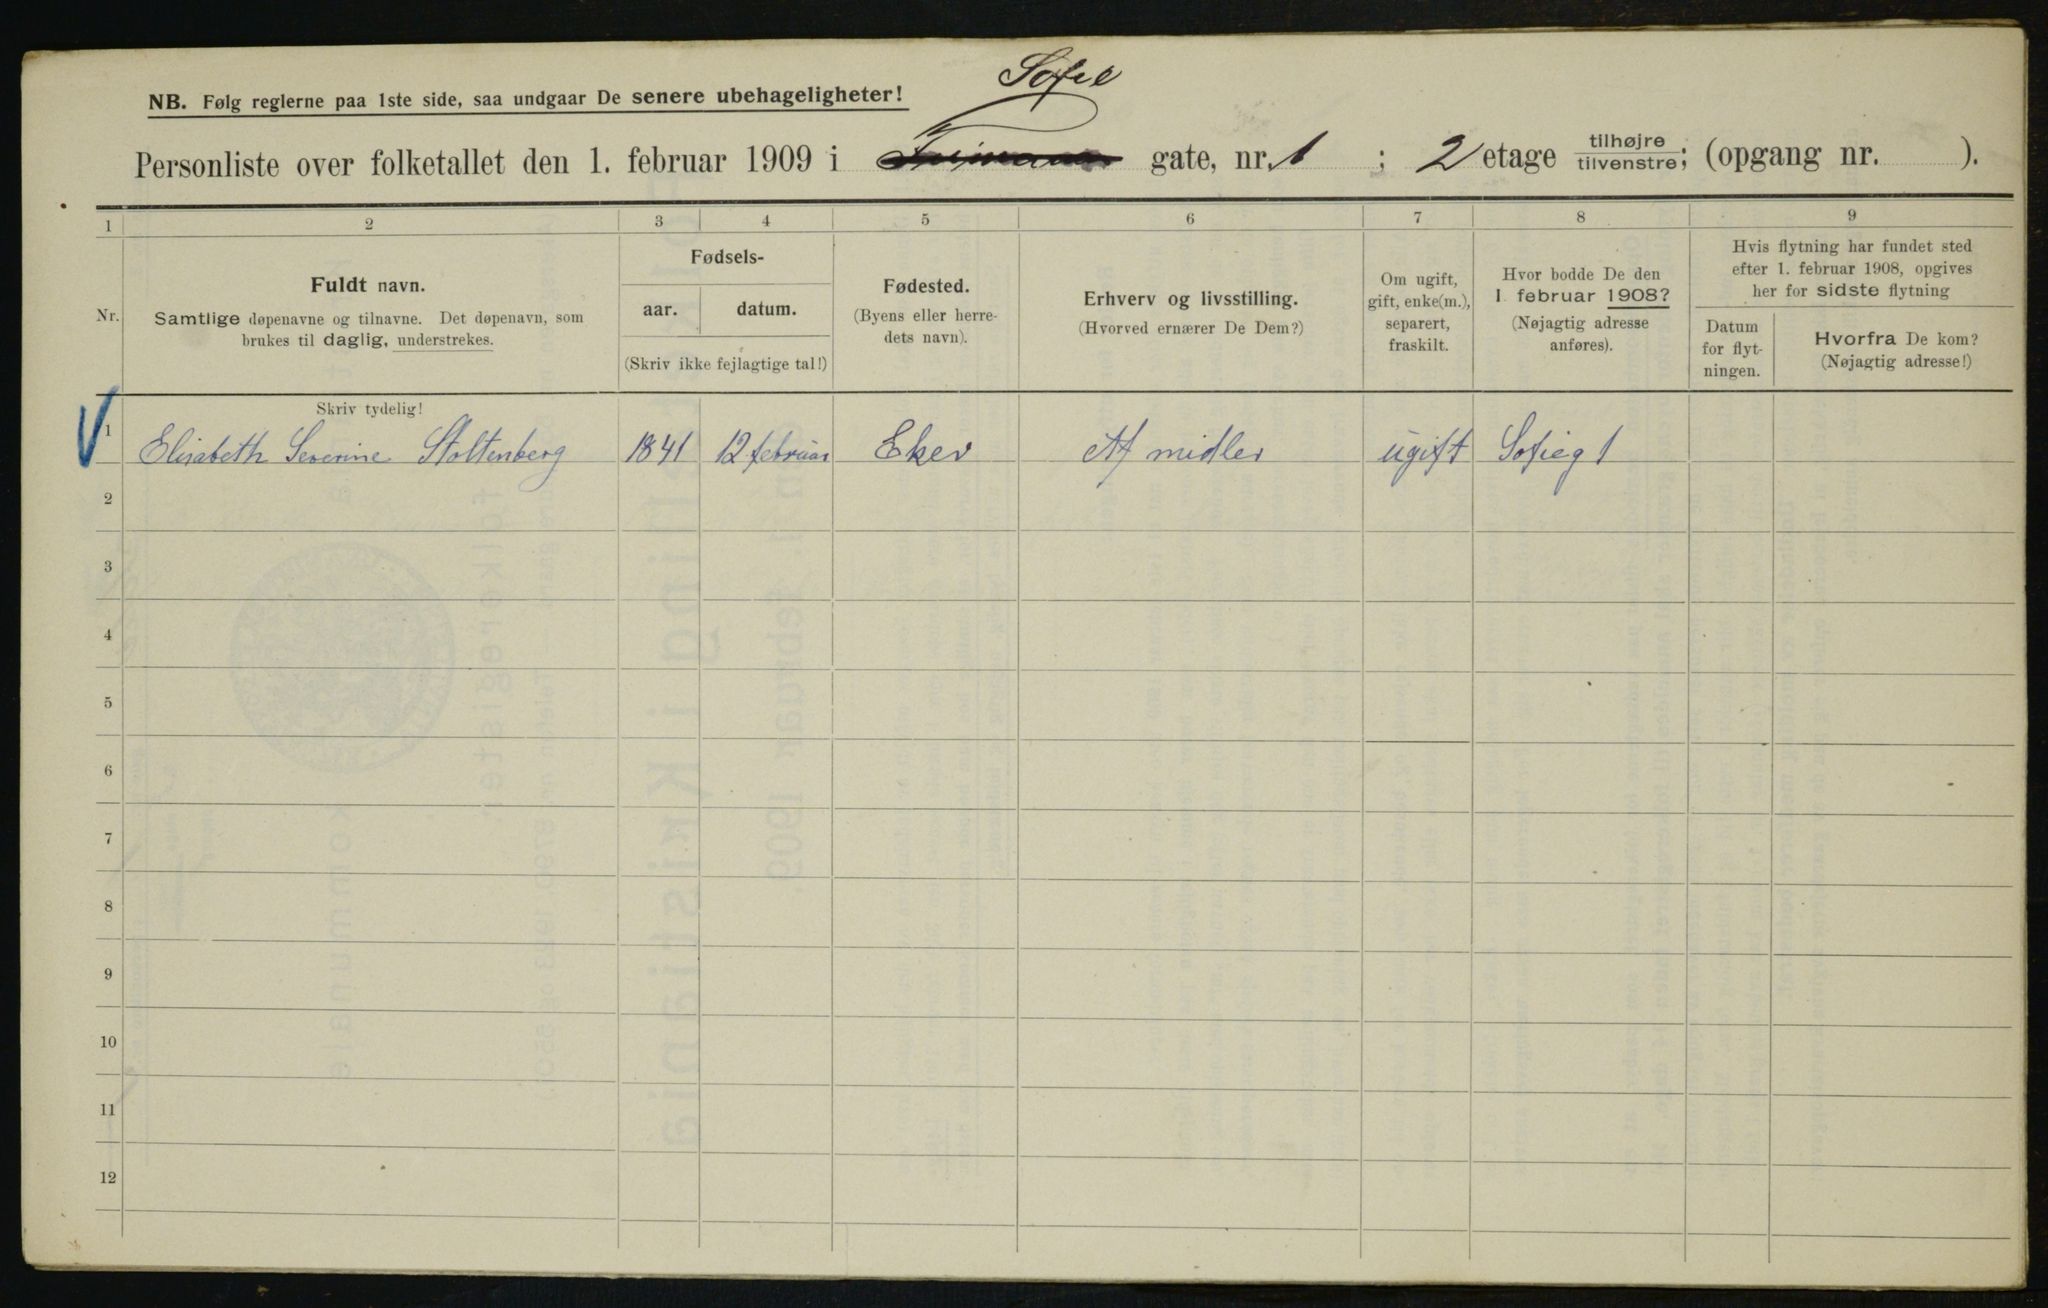 Sofie
NB. Følg reglerne paa 1ste side, saa undgaar De senere ubehageligheter!
Personliste over folketallet den 1. februar 1909 i gate, nr. 1 ; 2 etage tilhøjre tilvenstre; (opgang nr. ).
1 2 3 4 5 6 7 8 9
Nr.
Fuldt navn.
Samtlige døpenavne og tilnavne. Det døpenavn, som
brukes til daglig, understrekes.
Fødsels-
aar. datum.
(Skriv ikke fejlagtige tal!)
Fødested.
(Byens eller herre-
dets navn).
Erhverv og livsstilling.
(Hvorved ernærer De Dem?)
Om ugift,
gift, enke(m.),
separert,
fraskilt.
Hvor bodde De den
1. februar 1908?
(Nøjagtig adresse
anføres).
Hvis flytning har fundet sted
efter 1. februar 1908, opgives
her for sidste flytning
Datum
for flyt-
ningen.
Hvorfra De kom?
(Nøjagtig adresse!)
Skriv tydelig!
1 Elisabeth Severine Stoltenberg 1841 12 februar Eker Af midler ugift Sofieg 1
2
3
4
5
6
7
8
9
10
11
12